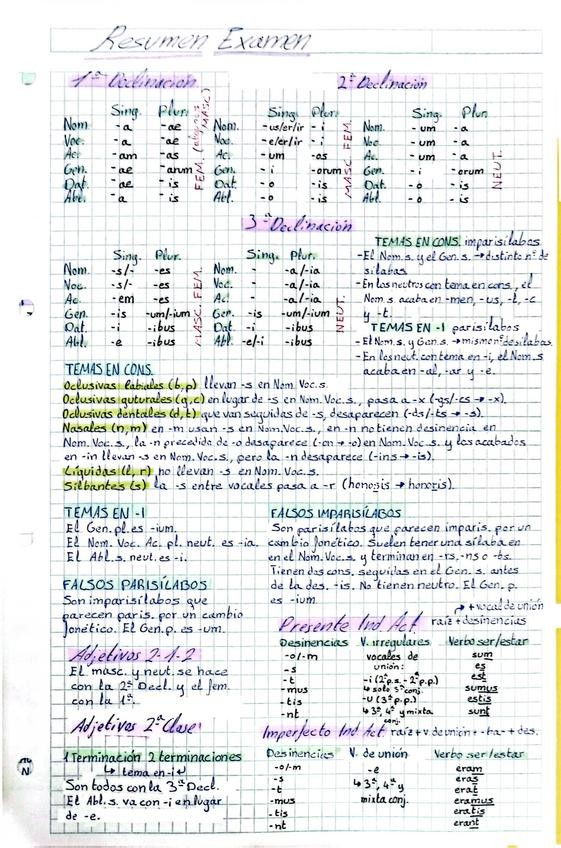 Resumen Examen
1ª Declinación
Sing. Plur.
Nom -a -ae
Voc. -a -ae
Ac. -am -as
Gen. -ae -arum
Dat. -ae -is
Abl. -a -is
FEM. (algunos MASC)
2ª Declinación
Sing. Plur.
Nom. -us/er/ir -i
Voc. -e/er/ir -i
Ac. -um -os
Gen. -i -orum
Dat. -o -is
Abl. -o -is
MASC. FEM.
Sing. Plur.
Nom. -um -a
Voc. -um -a
Ac. -um -a
Gen. -i -orum
Dat. -o -is
Abl. -o -is
NEUT.
3ª Declinación
Sing. Plur.
Nom. -s/- -es
Voc. -s/- -es
Ac -em -es
Gen -is -um/-ium
Dat -i -ibus
Abl -e -ibus
MASC. FEM.
Sing. Plur.
Nom. - -a/-ia
Voc. - -a/-ia
Ac. - -a/-ia
Gen -is -um/-ium
Dat. -i -ibus
Abl. -e/-i -ibus
NEUT.
TEMAS EN CONS. imparisílabos
-El Nom.s. y el Gen.s. → distinto nº de
sílabas
-En los neutros con tema en cons., el
Nom.s acaba en -men, -us, -l, -c
y -t.
TEMAS EN -I parisílabos
-El Nom.s. y Gen.s. → mismo nº de sílabas.
-En los neut. con tema en -i, el Nom.s
acaba en -al, -ar y -e.
TEMAS EN CONS.
Oclusivas labiales (b, p) llevan -s en Nom. Voc. s.
Oclusivas guturales (g, c) en lugar de -s en Nom. Voc. s., pasa a -x (-gs/-cs → -x).
Oclusivas dentales (d, t) que van seguidas de -s, desaparecen (-ds/-ts → -s).
Nasales (n, m) en -m usan -s en Nom. Voc. s., en -n no tienen desinencia en
Nom. Voc. s., la -n precedida de -o desaparece (-on → -o) en Nom. Voc. s. y los acabados
en -in llevan -s en Nom. Voc. s., pero la -n desaparece (-ins → -is).
Líquidas (l, r) no llevan -s en Nom. Voc. s.
Silbantes (s) la -s entre vocales pasa a -r (honosis → honoris).
TEMAS EN -I
El Gen. pl. es -ium.
El Nom. Voc. Ac. pl. neut. es -ia.
El Abl. s. neut. es -i.
FALSOS IMPARISÍLABOS
Son parisílabos que parecen imparis. por un
cambio fonético. Suelen tener una sílaba en
en el Nom. Voc. s. y terminan en -rs, -ns o -bs.
Tienen dos cons. seguidas en el Gen. s. antes
de la des. -is. No tienen neutro. El Gen. p.
es -ium.
FALSOS PARISÍLABOS
Son imparisílabos que
parecen paris. por un cambio
fonético. El Gen. p. es -um.
Adjetivos 2-1-2
El masc. y neut. se hace
con la 2ª Decl. y el fem.
con la 1ª.
Adjetivos 2ª Clase
1 Terminación 2 terminaciones
↳ tema en -i ↵
Son todos con la 3ª Decl.
El Abl. s. va con -i en lugar
de -e.
Presente Ind Act raíz + desinencias
↱ + vocal de unión
Desinencias V. irregulares Verbo ser/estar
-o/-m vocales de sum
-s unión: es
-t -i (2ª p.s. - 2ª p.p.) est
-mus ↳ solo 3ª conj. sumus
-tis -u (3ª p.p.) estis
-nt ↳ 3ª, 4ª y mixta conj. sunt
Imperfecto Ind Act raíz + v. de unión + -ba- + des.
Desinencias V. de unión Verbo ser/estar
-o/-m -e eram
-s ↳ 3ª, 4ª y eras
-t mixta conj. erat
-mus eramus
-tis eratis
-nt erant